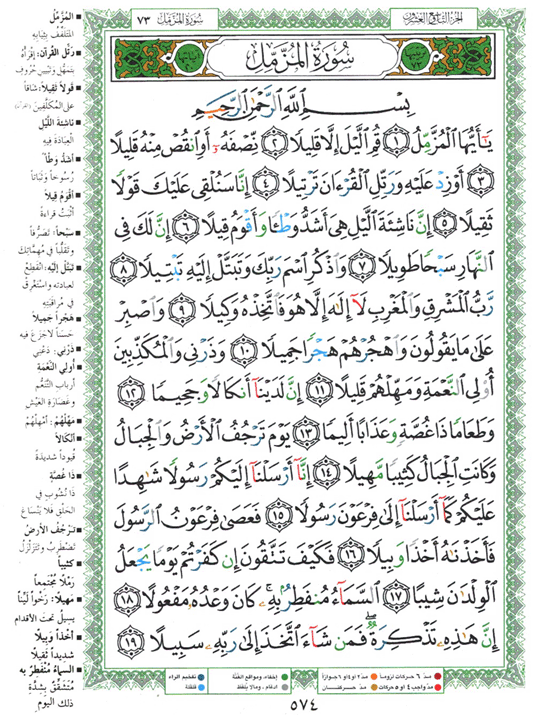 الجزء التاسع والعشرون
سورة المزمل ٧٣
سُورَةُ المُزَّمِّلِ
بِسْمِ اللَّهِ الرَّحْمَٰنِ الرَّحِيمِ
يَٰٓأَيُّهَا ٱلْمُزَّمِّلُ ١ قُمِ ٱلَّيْلَ إِلَّا قَلِيلًا ٢ نِّصْفَهُۥٓ أَوِ ٱنقُصْ مِنْهُ قَلِيلًا
٣ أَوْ زِدْ عَلَيْهِ وَرَتِّلِ ٱلْقُرْءَانَ تَرْتِيلًا ٤ إِنَّا سَنُلْقِى عَلَيْكَ قَوْلًا
ثَقِيلًا ٥ إِنَّ نَاشِئَةَ ٱلَّيْلِ هِىَ أَشَدُّ وَطْـًٔا وَأَقْوَمُ قِيلًا ٦ إِنَّ لَكَ فِى
ٱلنَّهَارِ سَبْحًا طَوِيلًا ٧ وَٱذْكُرِ ٱسْمَ رَبِّكَ وَتَبَتَّلْ إِلَيْهِ تَبْتِيلًا ٨
رَّبُّ ٱلْمَشْرِقِ وَٱلْمَغْرِبِ لَآ إِلَٰهَ إِلَّا هُوَ فَٱتَّخِذْهُ وَكِيلًا ٩ وَٱصْبِرْ
عَلَىٰ مَا يَقُولُونَ وَٱهْجُرْهُمْ هَجْرًا جَمِيلًا ١٠ وَذَرْنِى وَٱلْمُكَذِّبِينَ
أُو۟لِى ٱلنَّعْمَةِ وَمَهِّلْهُمْ قَلِيلًا ١١ إِنَّ لَدَيْنَآ أَنكَالًا وَجَحِيمًا ١٢
وَطَعَامًا ذَا غُصَّةٍ وَعَذَابًا أَلِيمًا ١٣ يَوْمَ تَرْجُفُ ٱلْأَرْضُ وَٱلْجِبَالُ
وَكَانَتِ ٱلْجِبَالُ كَثِيبًا مَّهِيلًا ١٤ إِنَّآ أَرْسَلْنَآ إِلَيْكُمْ رَسُولًا شَٰهِدًا
عَلَيْكُمْ كَمَآ أَرْسَلْنَآ إِلَىٰ فِرْعَوْنَ رَسُولًا ١٥ فَعَصَىٰ فِرْعَوْنُ ٱلرَّسُولَ
فَأَخَذْنَٰهُ أَخْذًا وَبِيلًا ١٦ فَكَيْفَ تَتَّقُونَ إِن كَفَرْتُمْ يَوْمًا يَجْعَلُ
ٱلْوِلْدَٰنَ شِيبًا ١٧ ٱلسَّمَآءُ مُنفَطِرٌۢ بِهِۦ كَانَ وَعْدُهُۥ مَفْعُولًا ١٨
إِنَّ هَٰذِهِۦ تَذْكِرَةٌ فَمَن شَآءَ ٱتَّخَذَ إِلَىٰ رَبِّهِۦ سَبِيلًا ١٩
المُزَّمِّلُ
المتلفّف بثيابه
رتّل القرآن: اقرأهُ
بتمهّل وتبيين حروف
قولاً ثقيلاً: شاقاً
على المكلّفين
ناشئة الليل
العبادة فيه
أشدّ وَطْأً
رسوخاً وثباتاً
أقوم قيلاً
أثبت قراءة
سبحاً: تصرّفاً
وتقلّباً في مهمّاتك
تبتّل إليه: انقطع
لعبادته واستغرق
في مراقبته
هجراً جميلاً
حسناً لا جزع فيه
ذرني: دعني
أولي النّعمة
أرباب التنعّم
وغضارة العيش
مهّلهم: أمهلهم
أنكالاً
قيوداً شديدة
ذا غصّة
ذا نشوب في
الحلق فلا ينساغ
ترجف الأرض
تضطرب وتتزلزل
كثيباً
رملاً مجتمعاً
مهيلاً: رخواً ليّناً
يسيل تحت الأقدام
أخذاً وبيلاً
شديداً ثقيلاً
السماء منفطر به
متشقّق بشدّة
ذلك اليوم
مدّ ٦ حركات لزوماً مدّ ٢ أو ٤ أو ٦ جوازاً إخفاء، ومواقع الغنّة تفخيم الراء
مدّ واجب ٤ أو ٥ حركات مدّ حركتان إدغام، وما لا يلفظ قلقلة
٥٧٤